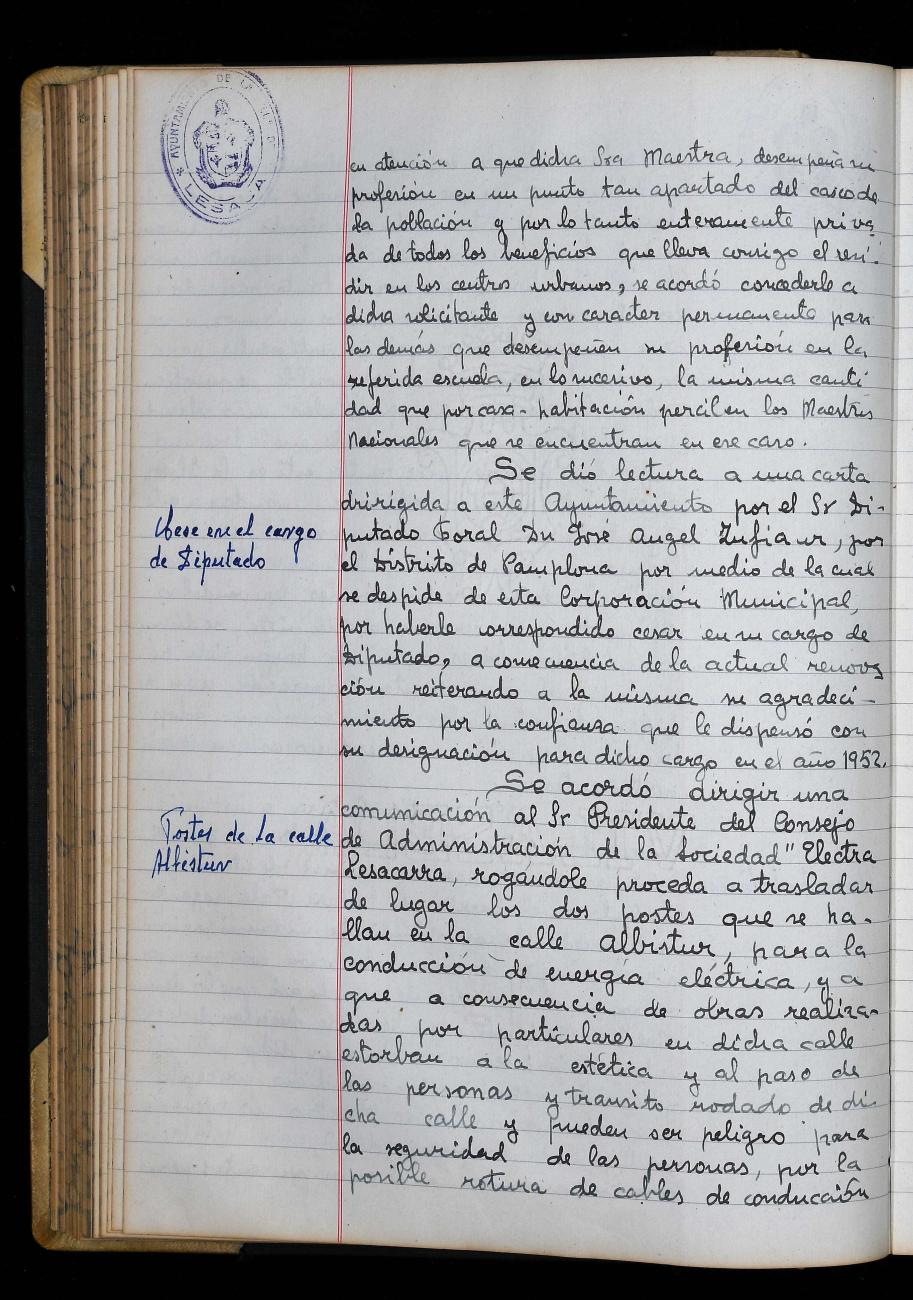 AYUNTAMIENTO DE LA VILLA DE
LESACA
en atención a que dicha Sra Maestra, desempeña su
profesión en un punto tan apartado del casco de
la población y por lo tanto enteramente priva
da de todos los beneficios que lleva consigo el resi-
dir en los centros urbanos, se acordó concederle a
dicha solicitante y con caracter permanente para
las demás que desempeñen su profesión en la
referida escuela, en lo sucesivo, la misma canti
dad que por casa-habitación perciben los Maestros
Nacionales que se encuentran en ese caso.
Se dió lectura a una carta
Cese en el cargo
de Diputado
dririgida a este Ayuntamiento por el Sr Di-
putado Foral Dn José Angel Zufiaur, por
el Distrito de Pamplona por medio de la cual
se despide de esta Corporación Municipal,
por haberle correspondido cesar en su cargo de
Diputado, a consecuencia de la actual renova
ción reiterando a la misma su agradeci-
miento por la confianza que le dispensó con
su designación para dicho cargo en el año 1952.
Se acordó dirigir una
Postes de la calle
Albistur
comunicación al Sr Presidente del Consejo
de Administración de la Sociedad "Electra
Lesacarra, rogándole proceda a trasladar
de lugar los dos postes que se ha-
llan en la calle Albistur, para la
conducción de energía eléctrica, y a
que a consecuencia de obras realiza-
das por particulares en dicha calle
estorban a la estética y al paso de
las personas y transito rodado de di-
cha calle y pueden ser peligro para
la seguridad de las personas, por la
posible rotura de cables de conducción